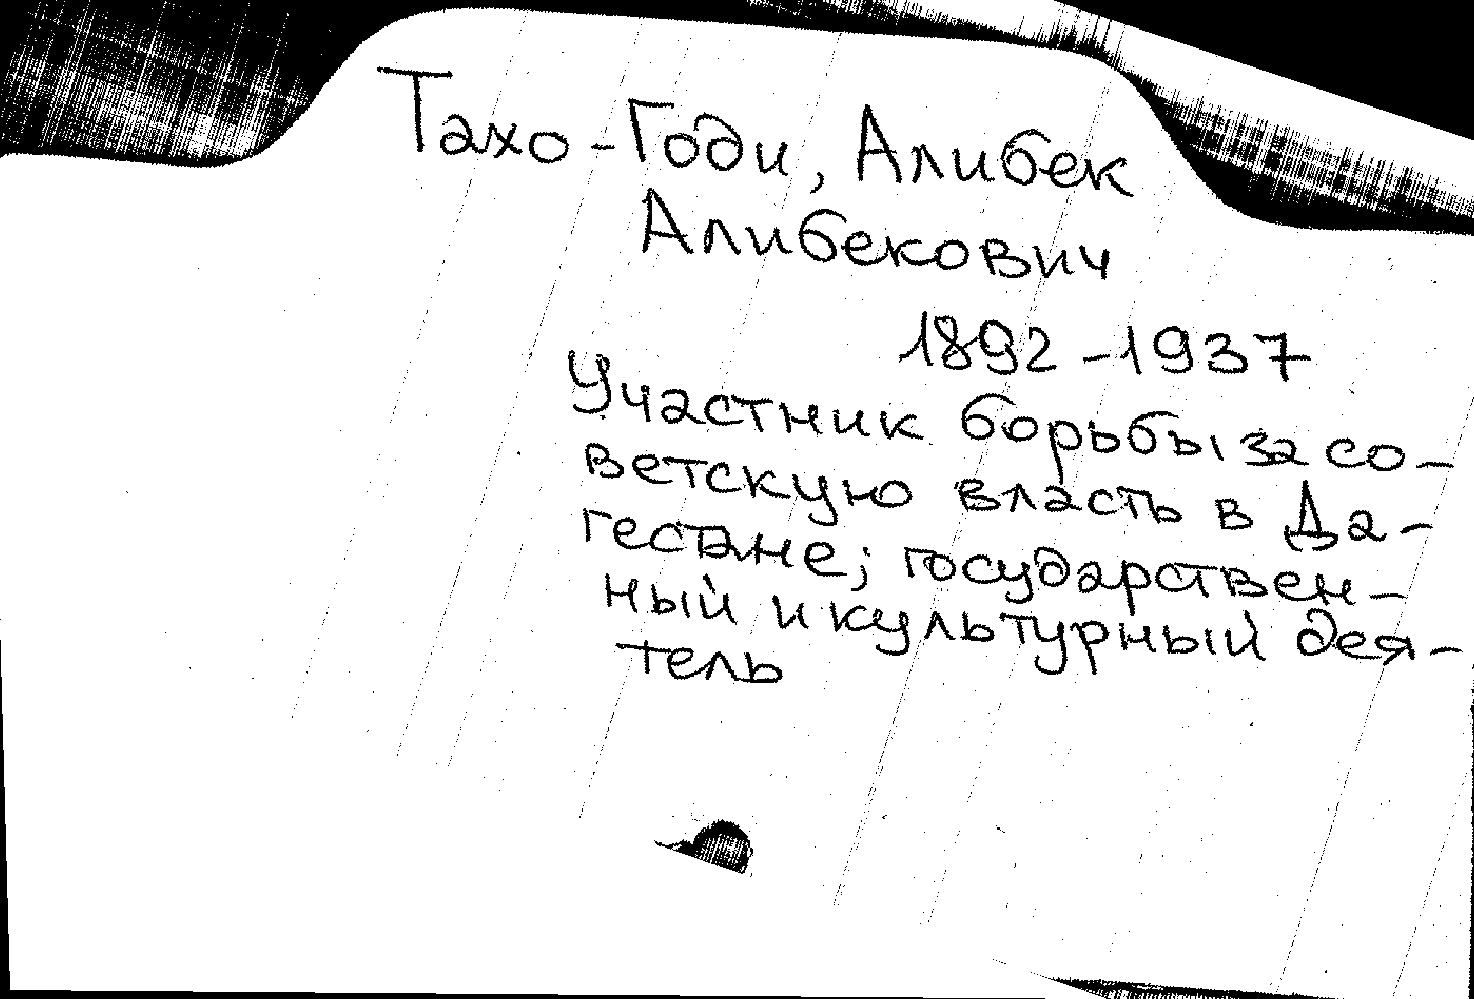 Тахо-Годи, Алибек
Алибекович
1892-1937
Участник борьбы за со-
ветскую власть в Да-
гестане; государствен-
ный и культурный дея-
тель